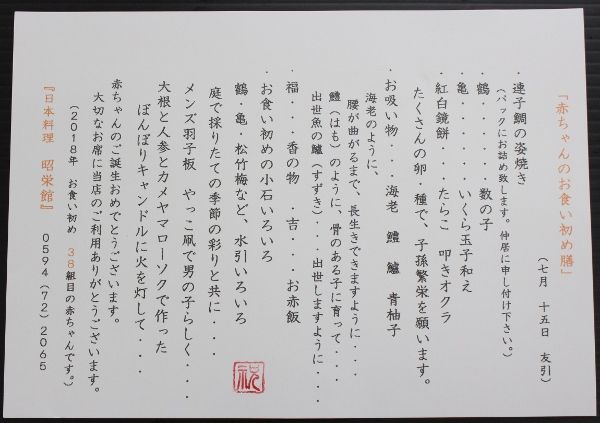 「赤ちゃんのお食い初め膳」
(七月 十五日 友引)
・連子鯛の姿焼き
(パックにお詰め致します。仲居に申し付け下さい。)
鶴・・・・・・数の子
亀・・・・・・いくら玉子和え
・紅白鏡餅・・・たらこ 叩きオクラ
たくさんの卵・種で、子孫繁栄を願います。
・お吸い物・・・海老 鱧 鱸 青柚子
海老のように、
腰が曲がるまで、長生きできますように・・・
鱧(はも)のように、骨のある子に育って・・・
出世魚の鱸(すずき)・・・出世しますように・・・
・福・・・香の物 ・吉・・・お赤飯
・お食い初めの小石いろいろ
鶴・亀・松竹梅など、水引いろいろ
庭で採りたての季節の彩りと共に・・・
メンズ羽子板 やっこ凧で男の子らしく・・・
大根と人参とカメヤマローソクで作った
ぼんぼりキャンドルに火を灯して・・・
赤ちゃんのご誕生おめでとうございます。
大切なお席に当店のご利用ありがとうございます。
(2018年 お食い初め 38組目の赤ちゃんです。)
『日本料理 昭栄館』 0594(72)2065
祝